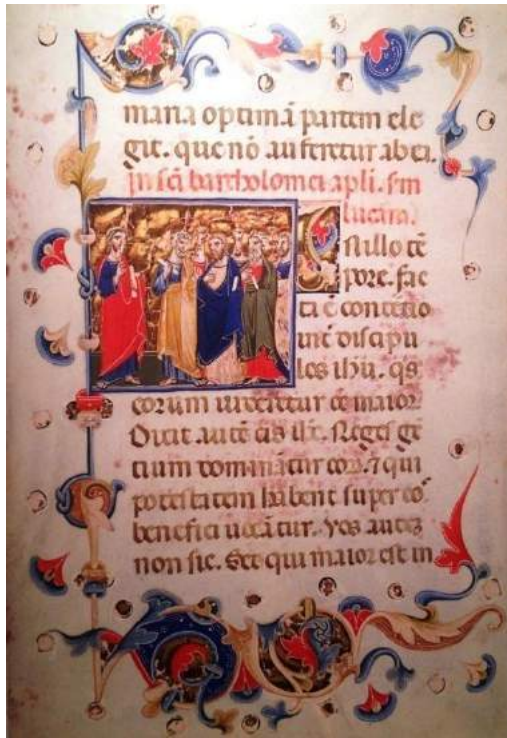 maria optimã partem ele
git. que nõ auferetur ab ea.
In sc̃i bartholomei apłi. sm̃
lucam.
I
n illo tẽ
pore. fac
ta ẽ contẽtio
int̃ discipu
los ihũ. q̃s
eorum uideretur eẽ maior
Dixit autẽ eis ih̃c. Reges gẽ
tium dominãtur eoȝ. ⁊ qui
potestatem habent super eõ
benefici uocãtur. Vos auteȝ
non sic. Sed qui maior est in